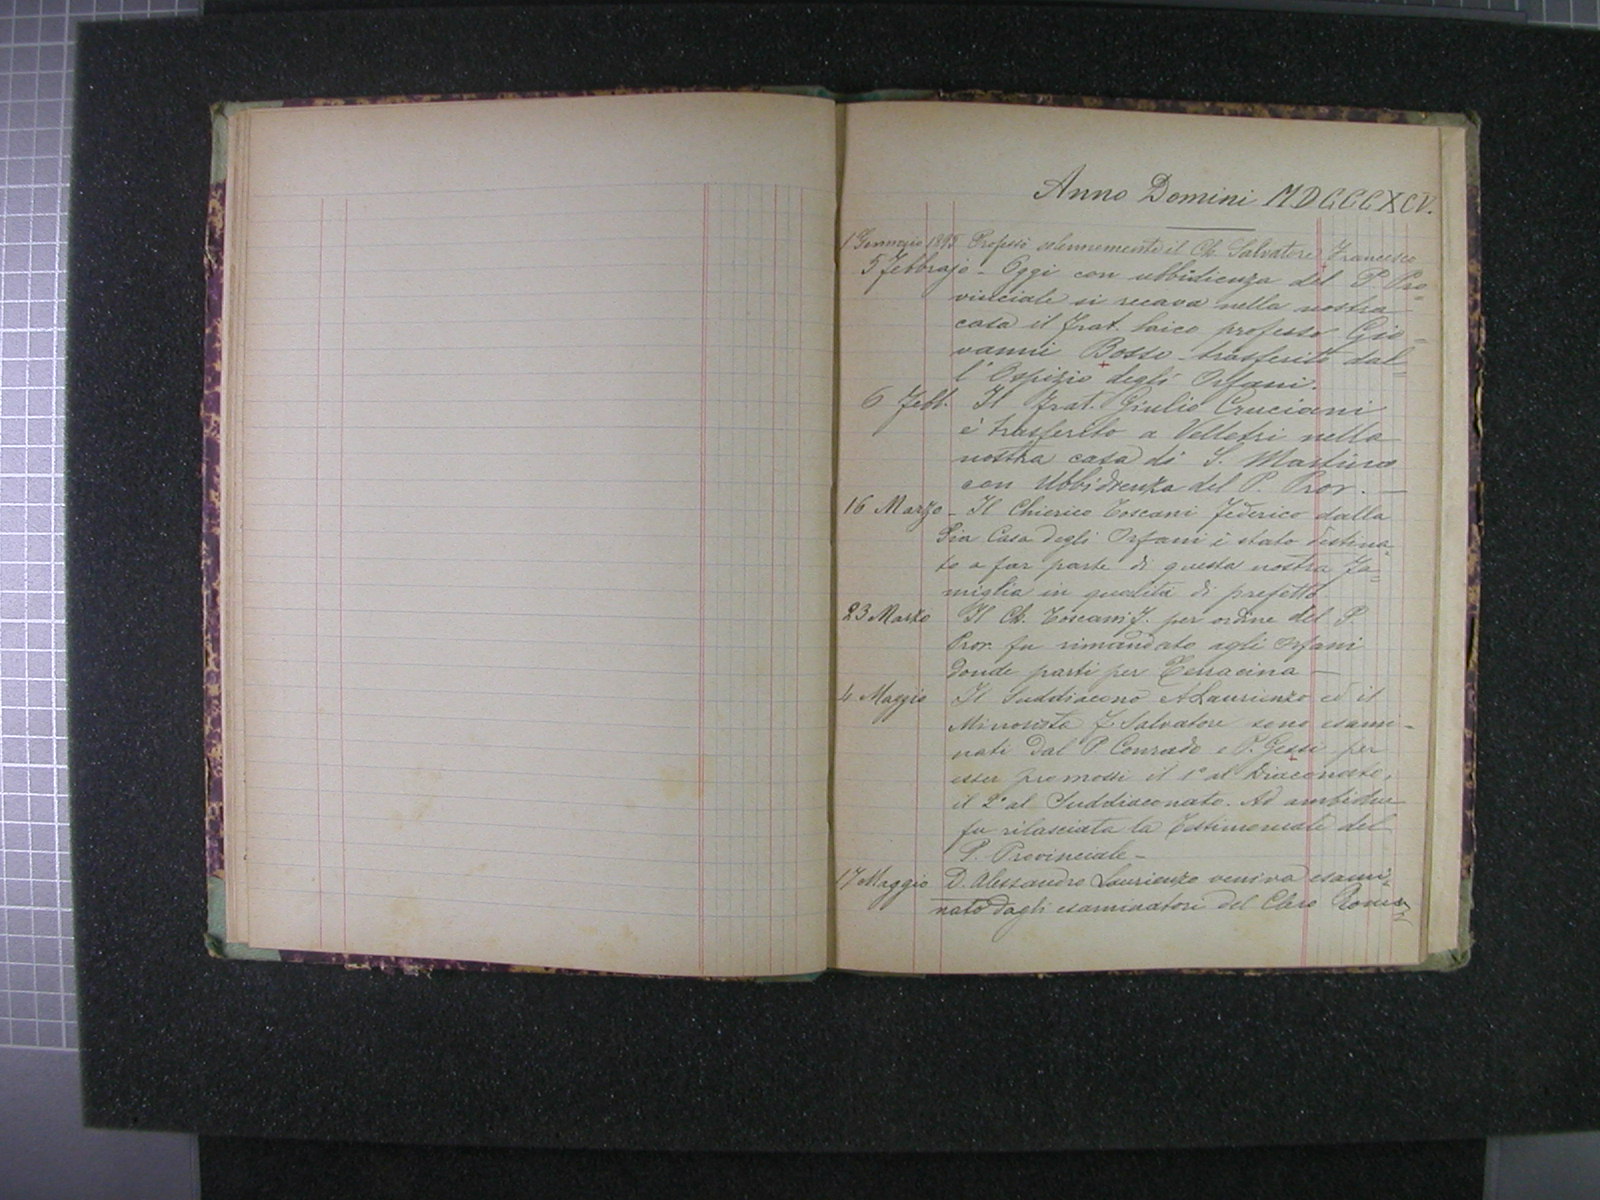 Anno Domini MDCCCXCV.
1 Gennajo 1895 Professò solennemente il Ch. Salvatore Francesco
5 Febbrajo - Oggi con ubbidienza del P. Pro-
vinciale si recava nella nostra
casa il Frat. laico professo Gio-
vanni Bosso trasferito dal-
l'Ospizio degli Orfani.
6 Febb. Il Frat. Giulio Cruciani
è trasferito a Velletri nella
nostra casa di S. Martino
con Ubbidienza del P. Prov. —
16 Marzo - Il Chierico Toscani Federico dalla
Pia Casa degli Orfani è stato destina-
to a far parte di questa nostra Fa-
miglia in qualità di prefetto
23 Marzo Il Ch. Toscani F. per ordine del P.
Prov. fu rimandato agli Orfani
donde partì per Terracina —
4 Maggio Il Suddiacono A. Laurienzo ed il
Minorista F. Salvatore sono esami-
nati dal P. Conrado e P. Gessi per
esser promossi il 1° al Diaconato,
il 2° al Suddiaconato. Ad ambidue
fu rilasciata la Testimoniale del
P. Provinciale -
17 Maggio D. Alessandro Laurienzo veniva esami-
nato dagli esaminatori del Clero Roma-